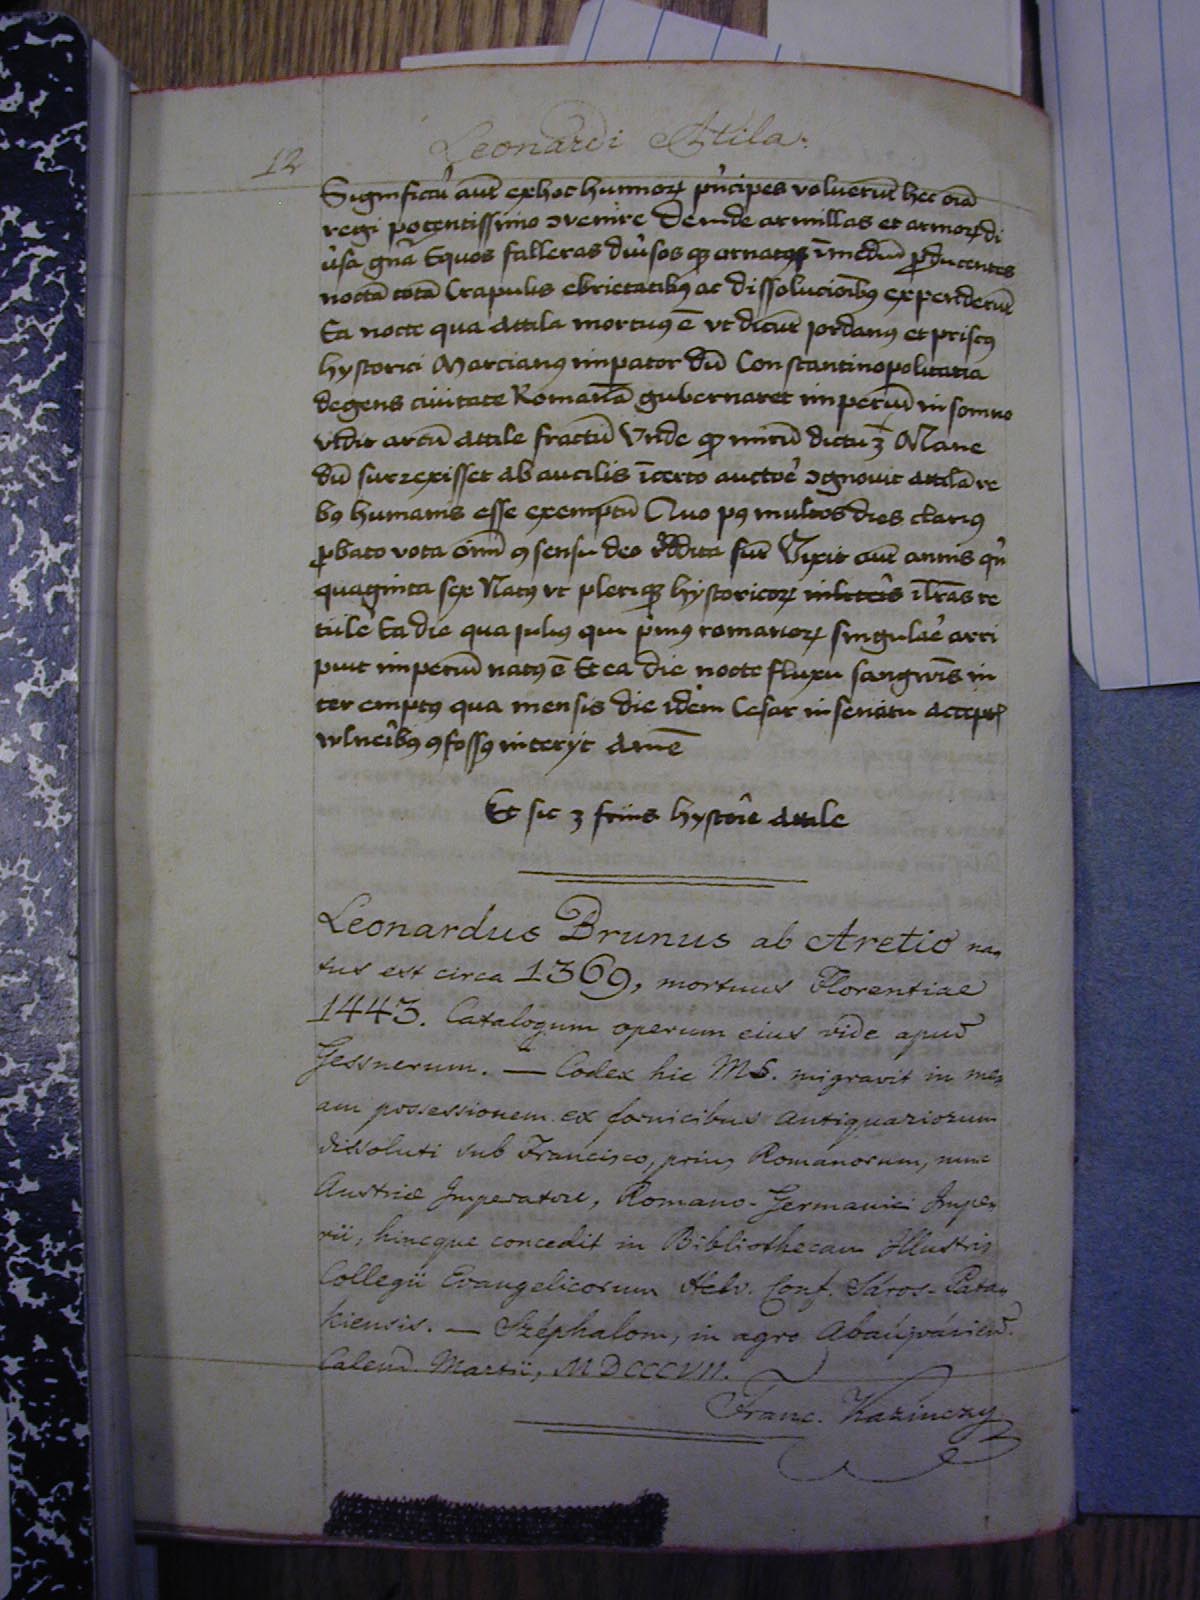 Leonardi Attila.
12
Significatū aut exhoc hunnorꝝ pⁱncipes voluerūt hec oīa
regi potentissimo ↄvenire Deinde armillas et armorꝝ di
ūsa gn̄a Equos falleras diūsos ꝙ ornatus ī mediū ꝓducentes
noctā totā Crapulis ebrietatibꝰ ac dissolucionibꝰ expenderūt
Ea nocte qua Attila mortuꝰ ē vt dicūt Jordanꝰ et priscꝰ
hystorici Marcianꝰ imꝑator dū Constantinopolitana
degens ciuitate Romanā gubernaret imperiū in somno
vidit arcū Attile fractū Vnde ꝙ mirū dictu ꝫ Mane
dū surrexisset ab aucilis īcerto auctoe ↄgnouit Attilā re
bꝰ humanis esse exemptū Quo pꝰ multos dies clariꝰ
ꝓbato vota oim̄ ꝯsensu deo reddita fuēt Vixit aut annis qⁱn
quaginta sex Natꝰ vt pleriqꝫ hystoricorꝝ īlr̄as re
tule Ea die qua Juliꝰ qui pⁱmꝰ romanorꝝ singulae arri
puit imperiū natꝰ ē Et ea die nocte fluxu sangwīs in
teremptꝰ qua mensis die idem Cesar in senatu acceptꝭ
wlneībꝰ ꝯfossꝰ interijt Amē
Et sic ꝫ finis hystoīe Attile
Leonardus Brunus ab Aretio na-
tus est circa 1369, mortuus Florentiae
1443. Catalogum operum eius vide apud
Gessnerum. — Codex hic MS. migravit in me-
am possessionem ex fornicibus antiquariorum
dissoluti sub Francisco, prius Romanorum, nunc
Austriæ Imperatore, Romano-Germanici Impe-
rii, hincque concedit in Bibliothecam Illustris
Collegii Evangelicorum Helv. Conf. Sáros-Pata-
kiensis. — Széphalom, in agro Abaújváriens.
Calend. Martii, MDCCCVII.
Franc. Kazinczy